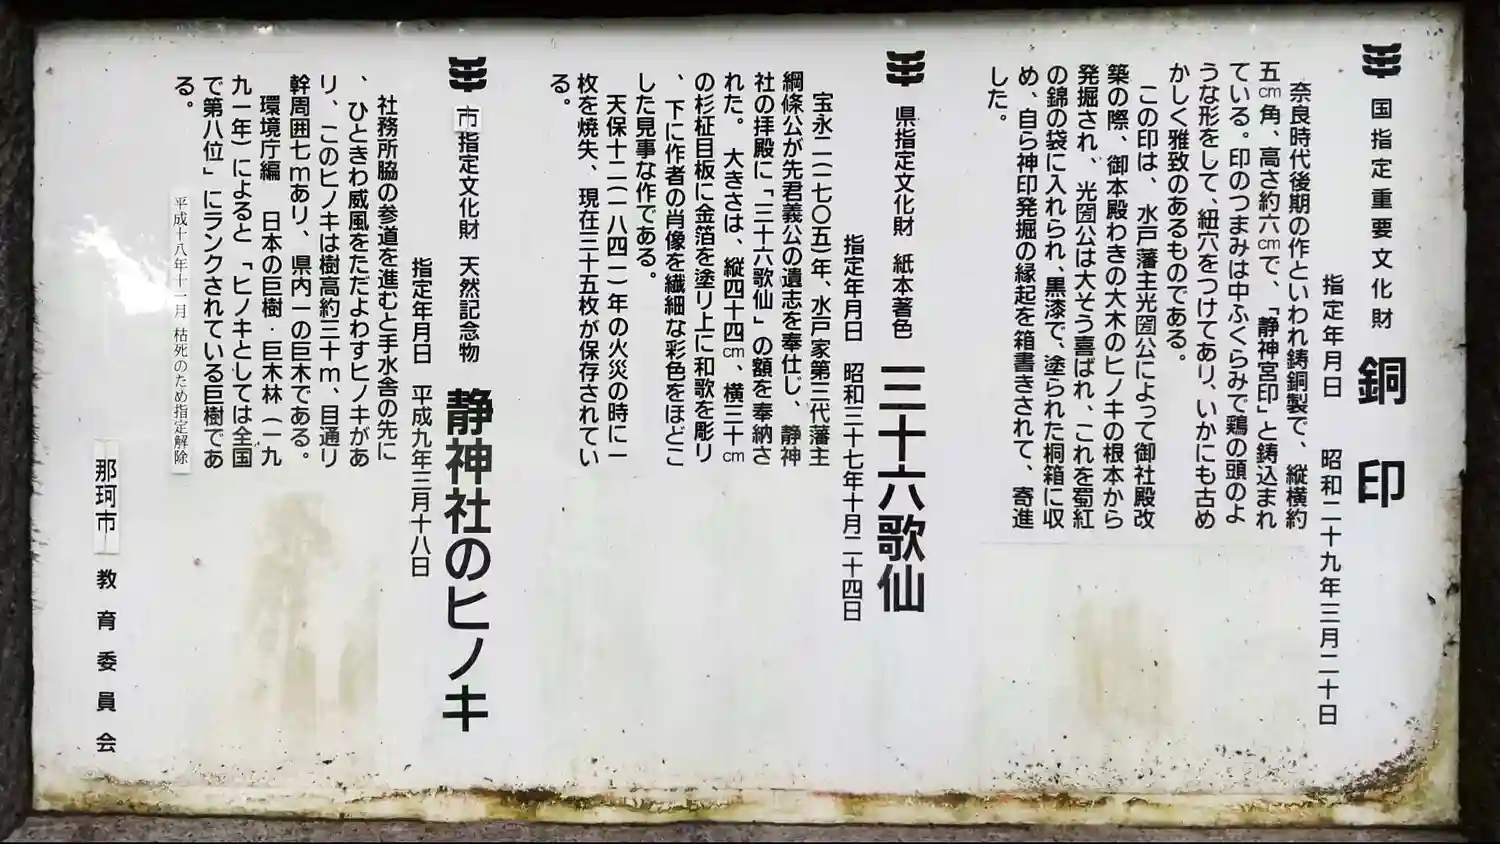 国指定重要文化財 銅印
指定年月日 昭和二十九年三月二十日
奈良時代後期の作といわれ鋳銅製で、縦横約
五㎝角、高さ約六㎝で、「静神宮印」と鋳込まれ
ている。印のつまみは中ふくらみで鶏の頭のよ
うな形をして、紐穴をつけてあり、いかにも古め
かしく雅致のあるものである。
この印は、水戸藩主光圀公によって御社殿改
築の際、御本殿わきの大木のヒノキの根本から
発掘され、光圀公は大そう喜ばれ、これを蜀紅
の錦の袋に入れられ、黒漆で、塗られた桐箱に収
め、自ら神印発掘の縁起を箱書きされて、寄進
した。
県指定文化財 紙本著色 三十六歌仙
指定年月日 昭和三十七年十月二十四日
宝永二(一七〇五)年、水戸家第三代藩主
綱條公が先君義公の遺志を奉仕じ、静神
社の拝殿に「三十六歌仙」の額を奉納さ
れた。大きさは、縦四十四㎝、横三十㎝
の杉柾目板に金箔を塗り上に和歌を彫り
、下に作者の肖像を繊細な彩色をほどこ
した見事な作である。
天保十二(一八四一)年の火災の時に一
枚を焼失、現在三十五枚が保存されてい
る。
市指定文化財 天然記念物 静神社のヒノキ
指定年月日 平成九年三月十八日
社務所脇の参道を進むと手水舎の先に
、ひときわ威風をただよわすヒノキがあ
り、このヒノキは樹高約三十m、目通り
幹周囲七mあり、県内一の巨木である。
環境庁編 日本の巨樹・巨木林(一九
九一年)によると「ヒノキとしては全国
で第八位」にランクされている巨樹であ
る。
平成十八年十一月 枯死のため指定解除
那珂市 教育委員会